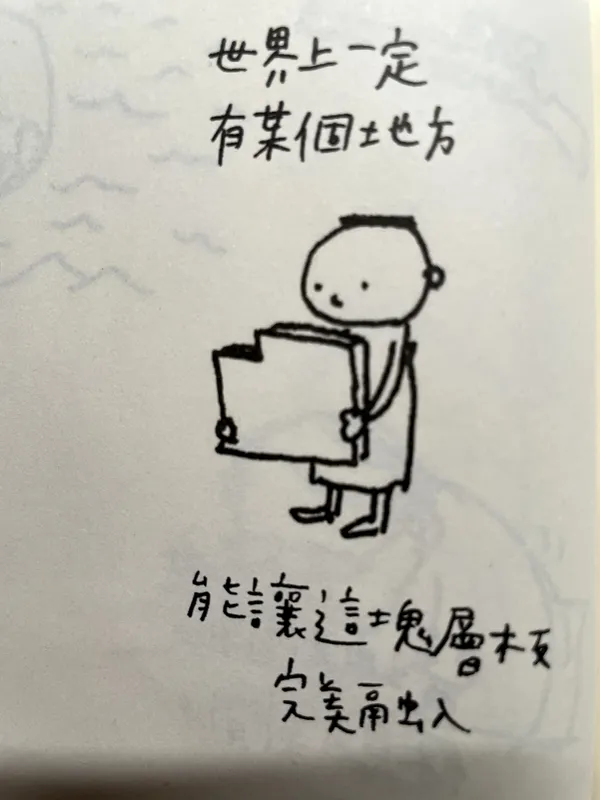 世界上一定
有某個地方
能讓這塊層板
完美融入